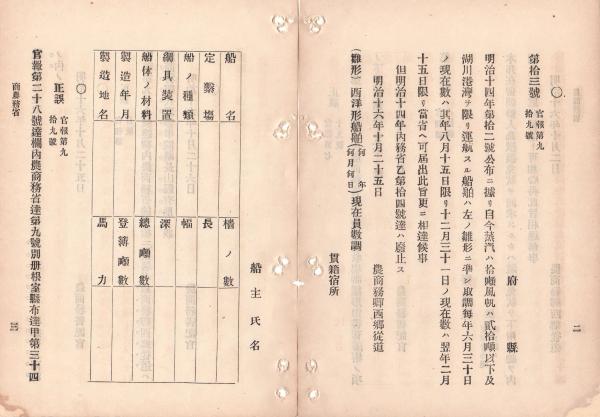 〇
第拾三號 官報第九拾九號
府縣
明治十四年第拾二號公布ニ據リ自今蒸汽ハ拾噸風帆ハ貳拾噸以下及
湖川港灣ヲ限リ運航スル船舶ハ左ノ雛形ニ準シ取調毎年六月三十日
ノ現在數ハ其年八月十五日限リ十二月三十一日ノ現在數ハ翌年二月
十五日限リ當省ヘ可届出此旨更ニ相達候事
但明治十四年内務省乙第拾四號達ハ廢止ス
明治十六年十月二十五日
農商務卿西郷從道
(雛形)西洋形船舶(何年何月何日)現在員數調
貫籍宿所
二
船主氏名
船名
定繫場
船ノ種類
綱具裝置
船体ノ材料
製造年月
製造地名
檣ノ數
長
幅
深
總噸數
登簿噸數
馬力
〇
正誤 官報第九拾九號
官報第二十八號達欄内農商務省達第九號別册根室縣布達甲第三十四
商農務省
三